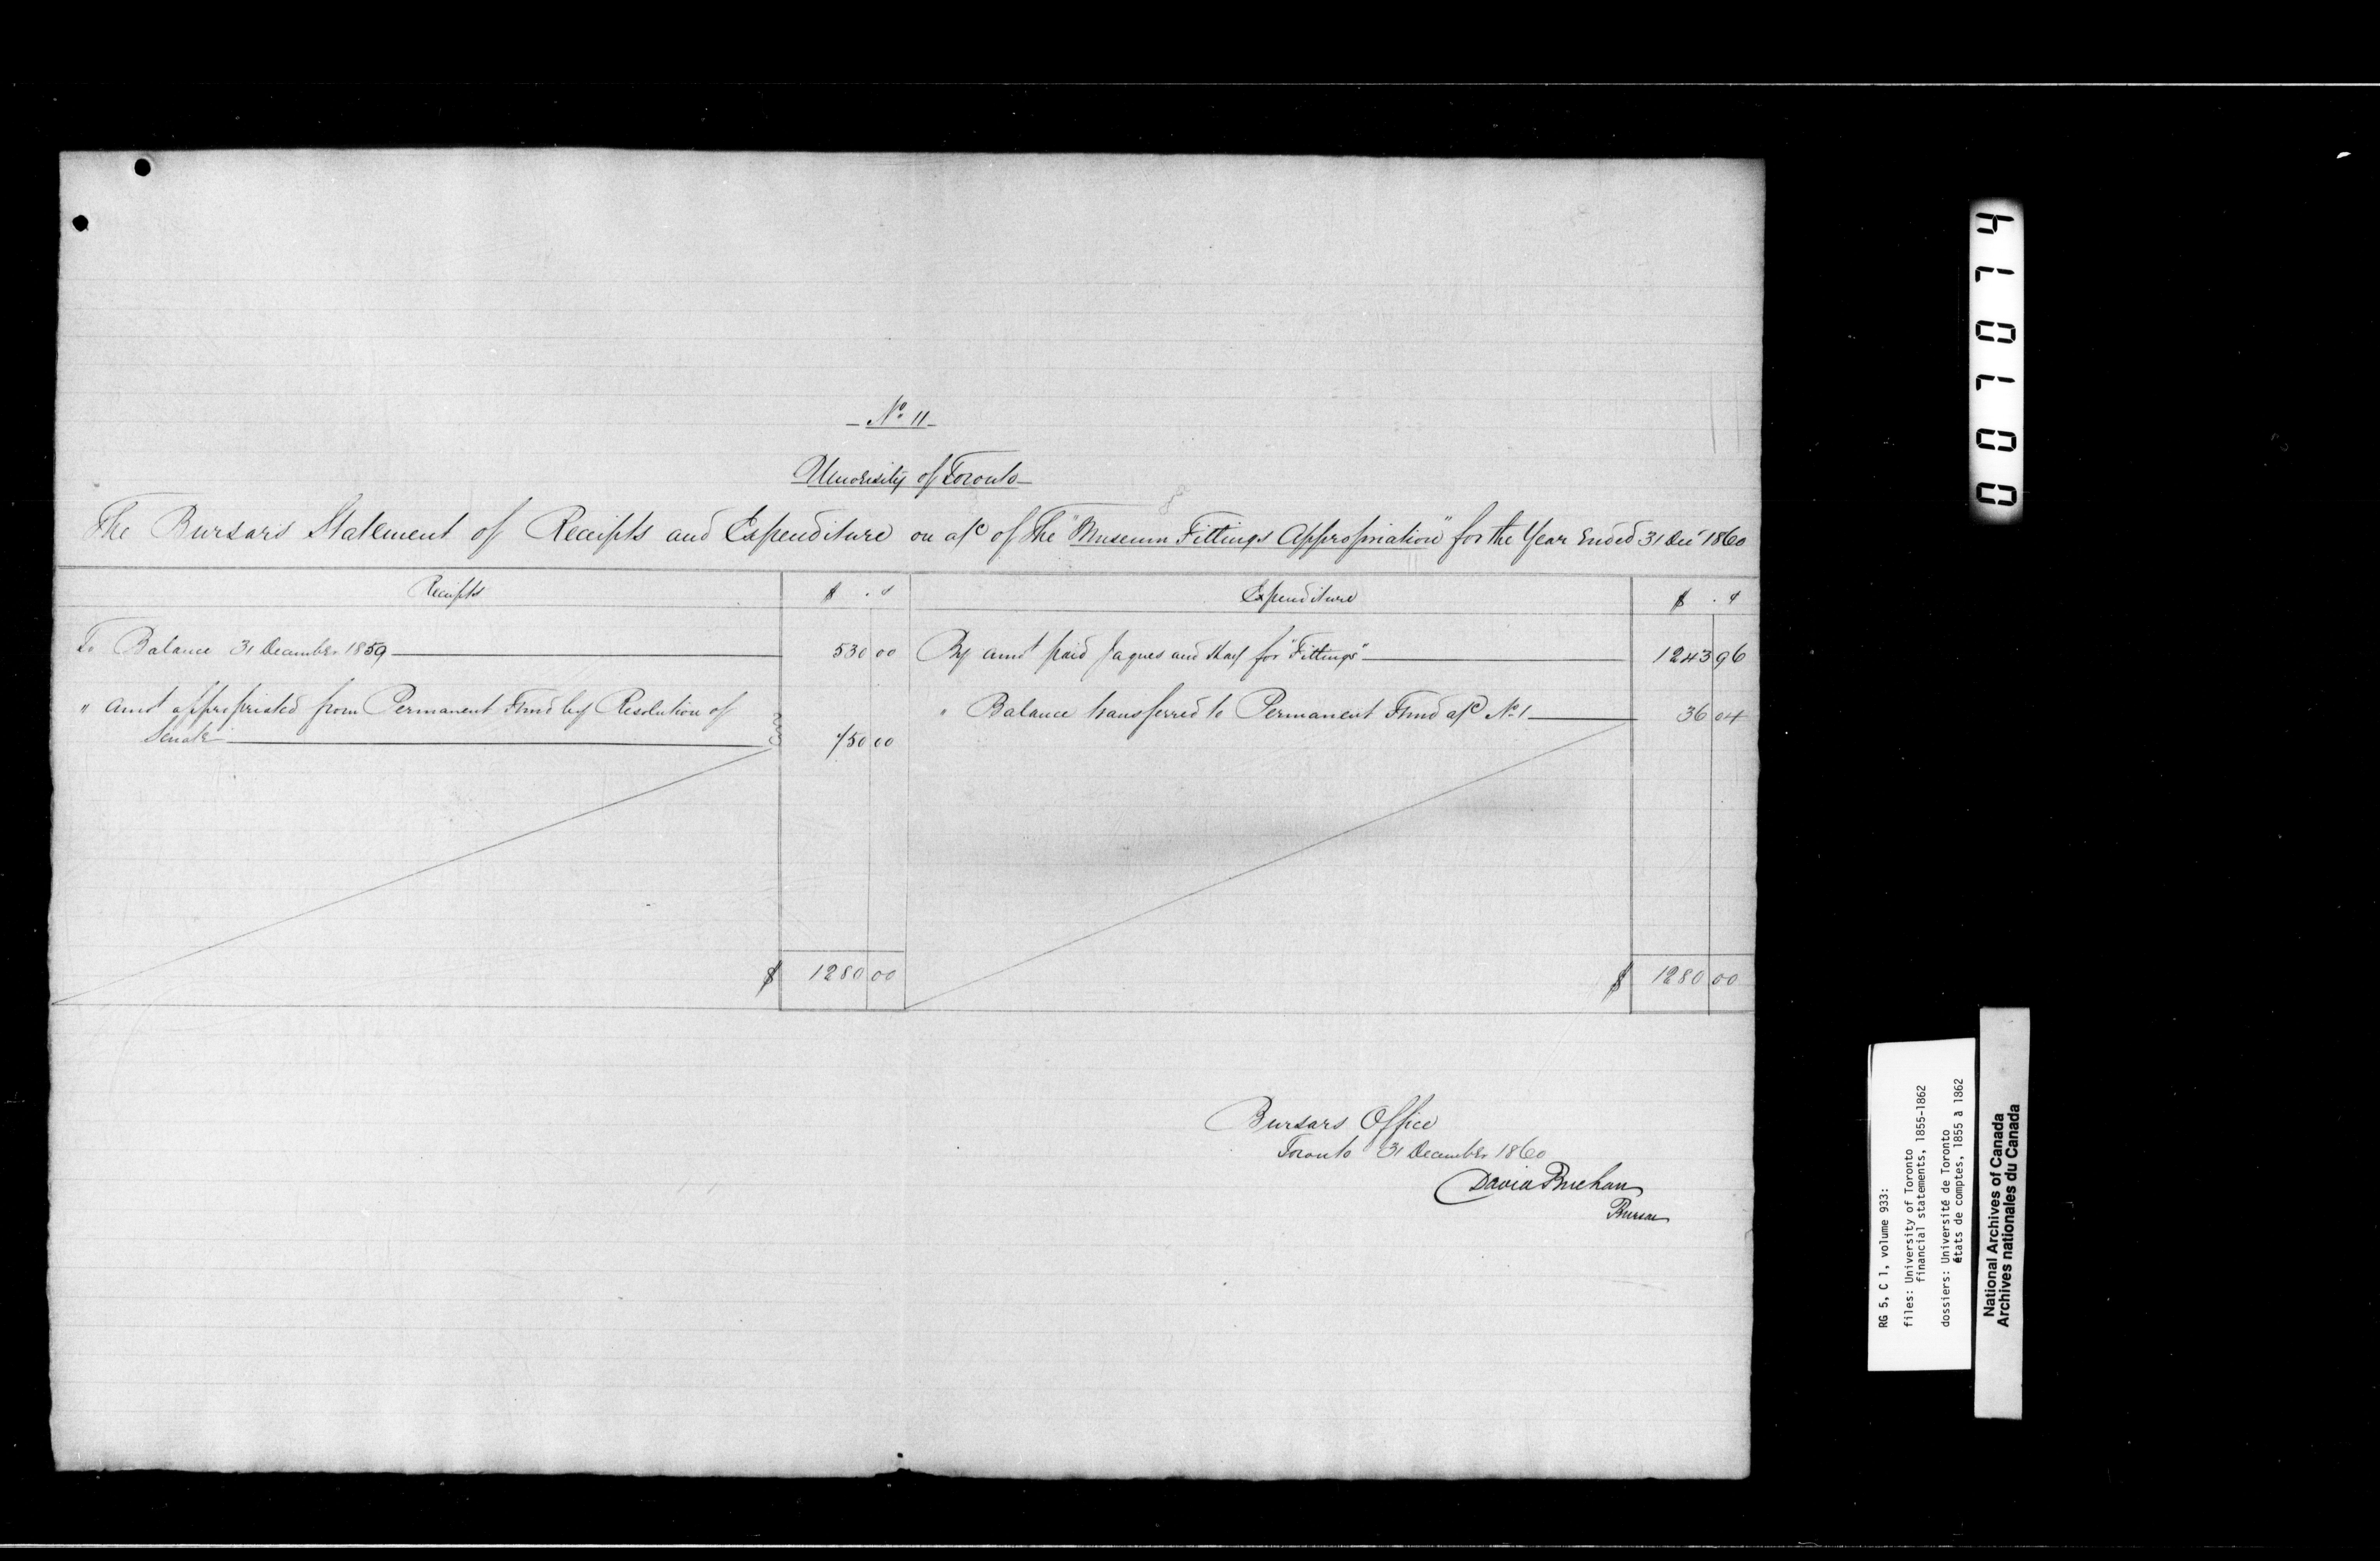 No. 11
University of Toronto
The Bursar's Statement of Receipts and Expenditure on a/c of the "Museum Fittings Appropriation" for the Year Ended 31 Dec 1860
Receipts $ . ¢ Expenditure $ . ¢
To Balance 31 December 1859 530 00 By amot paid Jaques and Hay for "Fittings" 1243 96
" amot appropriated from Permanent Fund by Resolution of
Senate 750 00
" Balance transferred to Permanent Fund a/c No. 1 36 04
$ 1280 00 $ 1280 00
Bursars Office
Toronto 31 December 1860
David Buchan
Bursar
001014
RG 5, C 1, volume 933:
files: University of Toronto
financial statements, 1855-1862
dossiers: Université de Toronto
états de comptes, 1855 à 1862
National Archives of Canada
Archives nationales du Canada